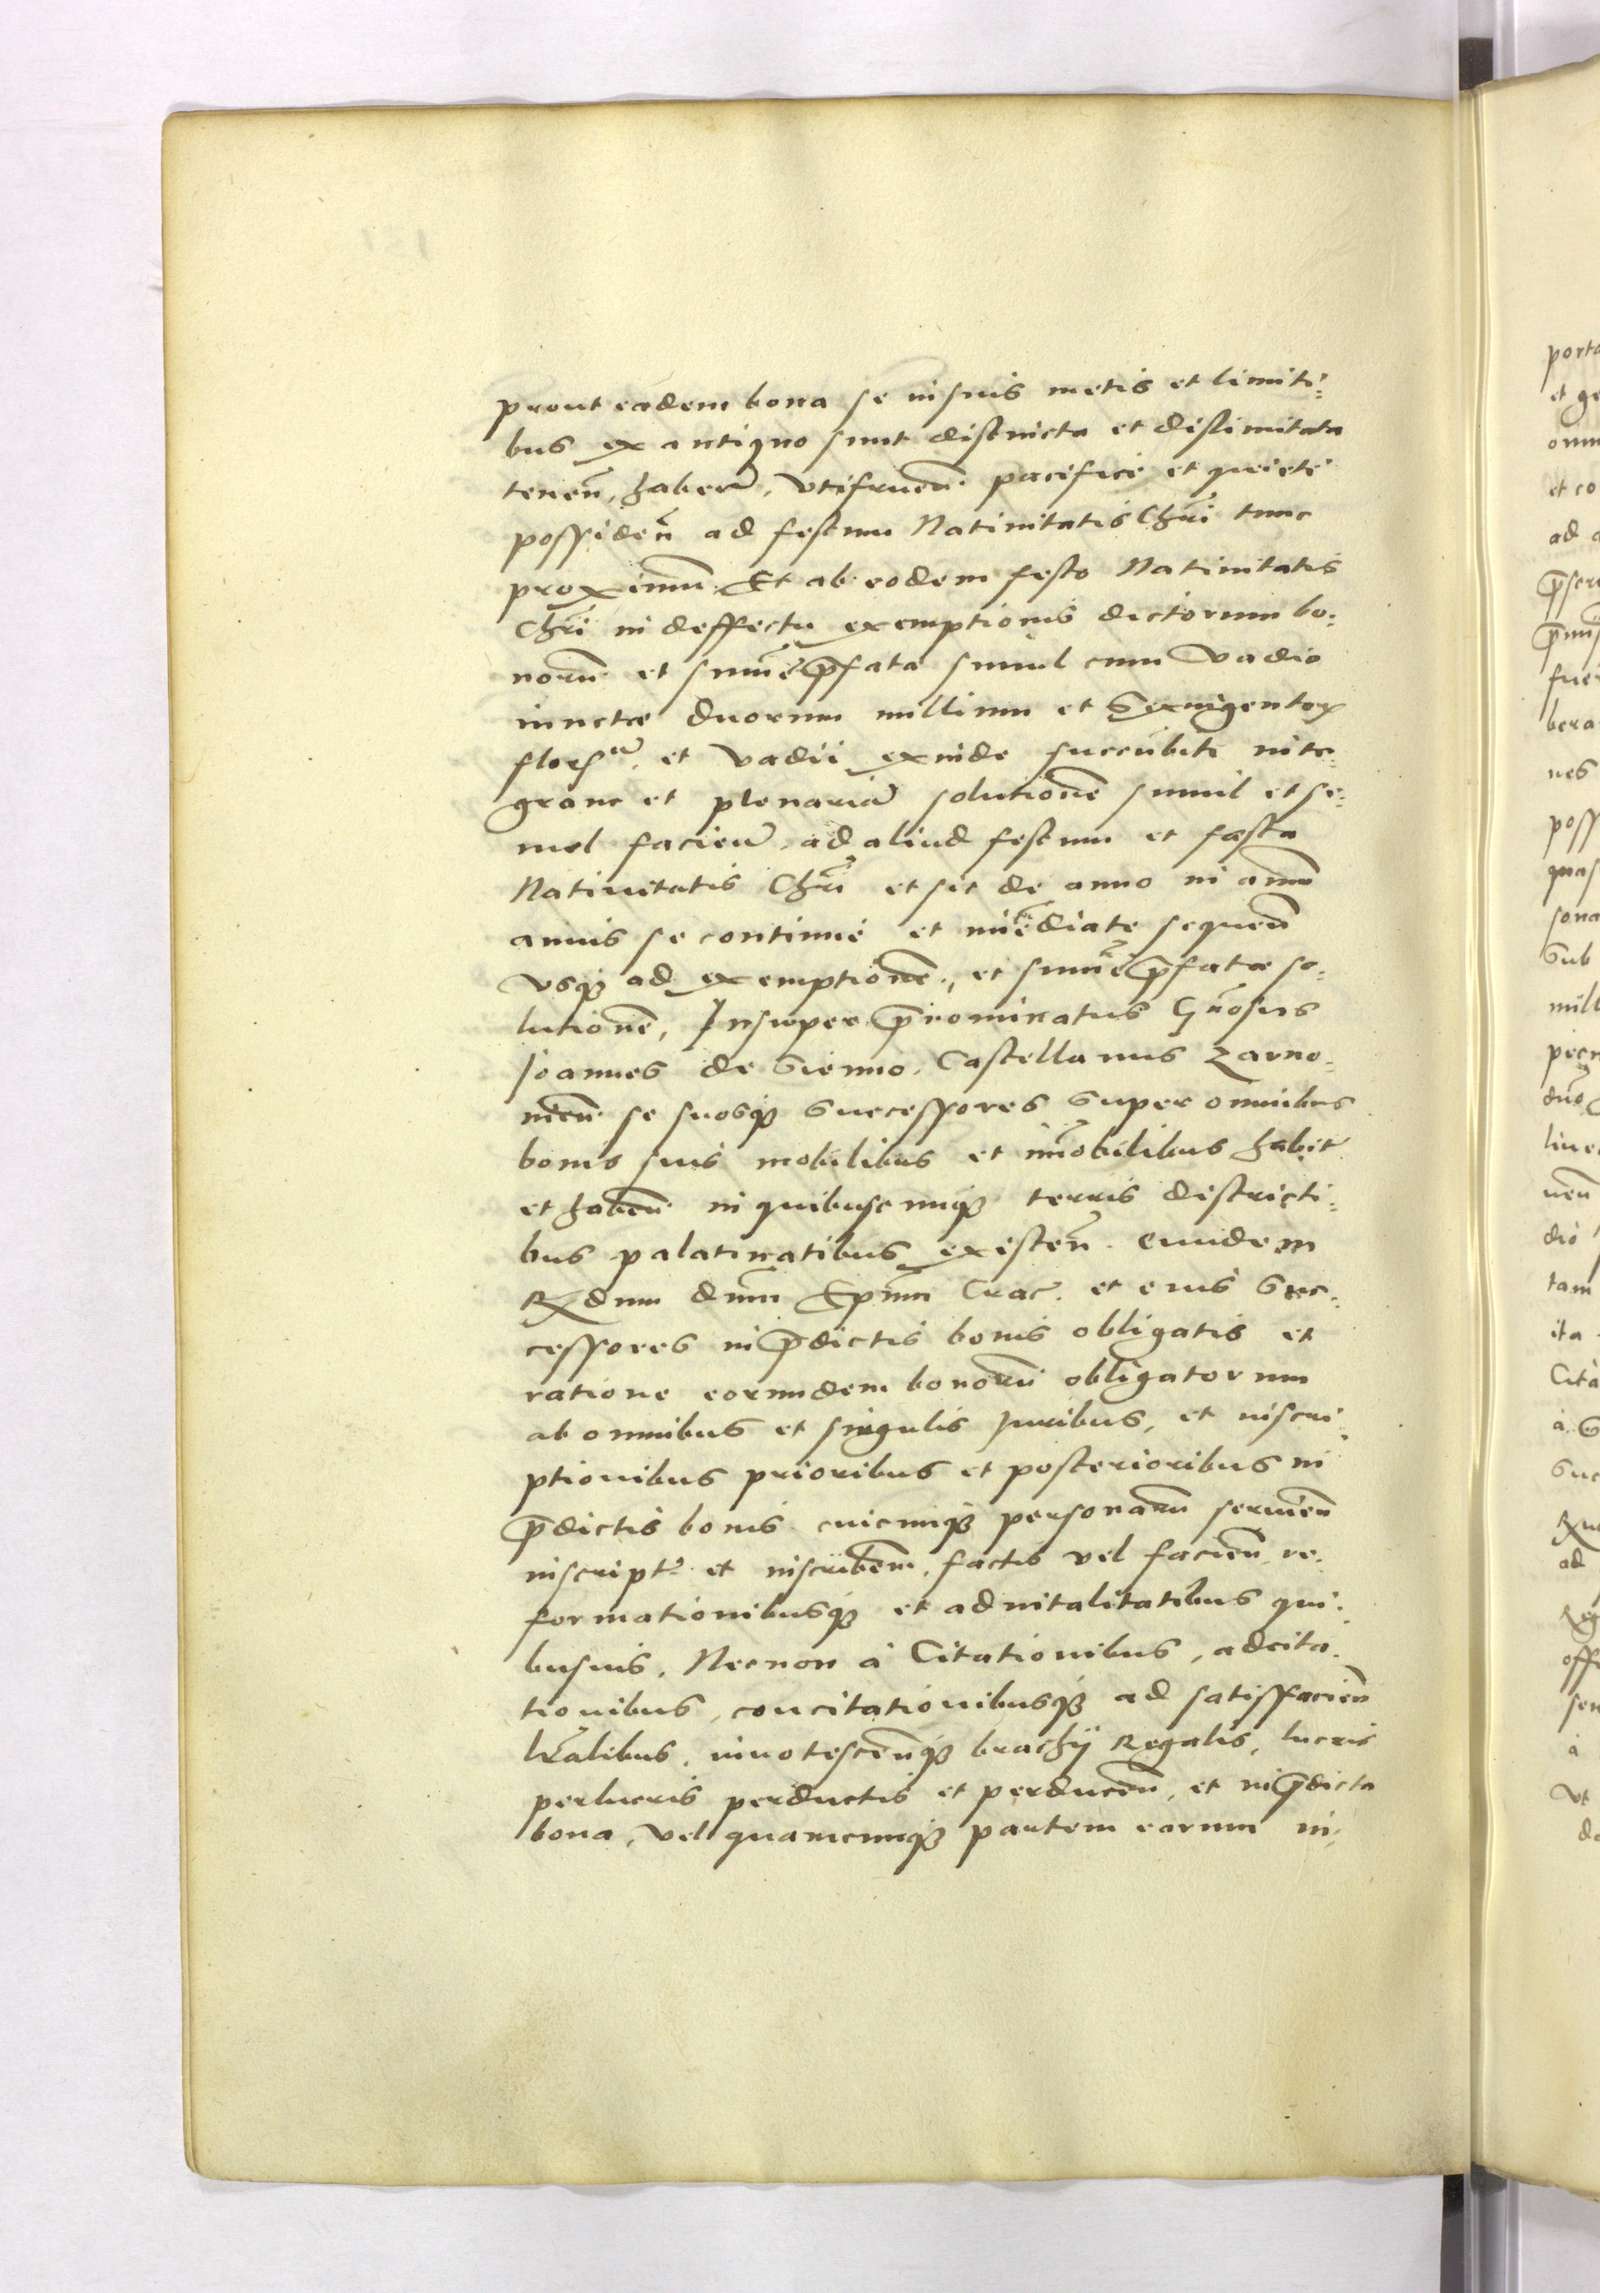 prout eadem bona se in suis metis et limiti=
bus ex antiquo sunt distincta et delimitata
tenen̄, haben̄, utifruen̄ pacifice et quiete
possiden̄ ad festum Natiuitatis Chr̄i tunc
proximum̄. Et ab eodem festo Natiuitatis
Chr̄i in deffectu exemptionis dictorum bo=
norum̄ et sum̄e p̄fata simul cum vadio
iunctæ duorum millium et Sexingentorꝝ
et vadii exinde succubiti inte=
gram et plenariā solutionē simul et se=
mel facien̄, ad aliud festum et fæsta
Natiuitatis Chr̄i et sic de anno in annū
annis se continuè et im̄ediate sequen̄
usqꝫ ad exemptionē, et sum̄e p̄fatæ so=
lutionē, Insuper p̄nominatus Gn̄osus
Joannes de Sienno, Castellanus Zarno=
uien̄ se suosqꝫ Successores super omnibus
bonis suis mobilibus et im̄obilibus habit̄
et haben̄ in quibuscunqꝫ terris districti=
bus palatinatibus existen̄. eundem
Rx̄dum dn̄um Ep̄um Crac̄. et eius Suc=
cessores in p̄dictis bonis obligatis et
ratione eorundem bonorum̄ obligatorum
ab omnibus et singulis juribus, et inscri=
ptionibus prioribus et posterioribus in
p̄dictis bonis cuicunqꝫ personarum̄ seruien̄
inscript̄ et inscriben̄, factis vel facien̄, re=
formationibusqꝫ et aduitalitatibus qui=
busuis, Necnon à Citationibus, adcita=
tionibus, concitationibusqꝫ ad satisfacien̄
lr̄alibus, innotescen̄qꝫ brachij Regalis, lucris
perlucris perductis et perducen̄, et in p̄dicta
bona, vel quamcunqꝫ partem earum in=
porta
et ge
omn
et co
ad a
p̄scri
fuer
bera
nes
poss
quas
sona
Sub
mill
pecn
dn̄o
dio
tam
ita
Cita
Suc
ad
offi
sen
à
ut